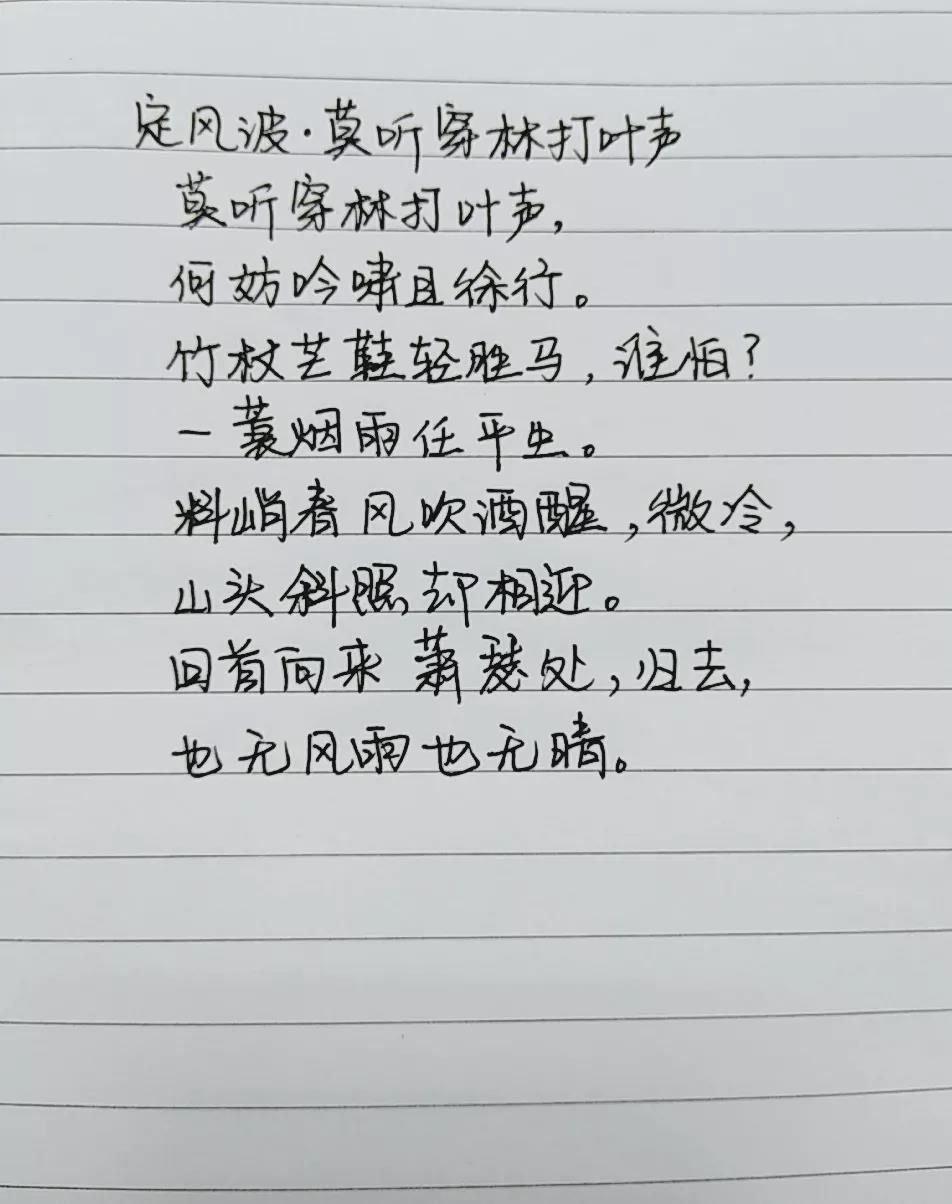 定风波·莫听穿林打叶声
莫听穿林打叶声,
何妨吟啸且徐行。
竹杖芒鞋轻胜马,谁怕?
一蓑烟雨任平生。
料峭春风吹酒醒,微冷,
山头斜照却相迎。
回首向来萧瑟处,归去,
也无风雨也无晴。